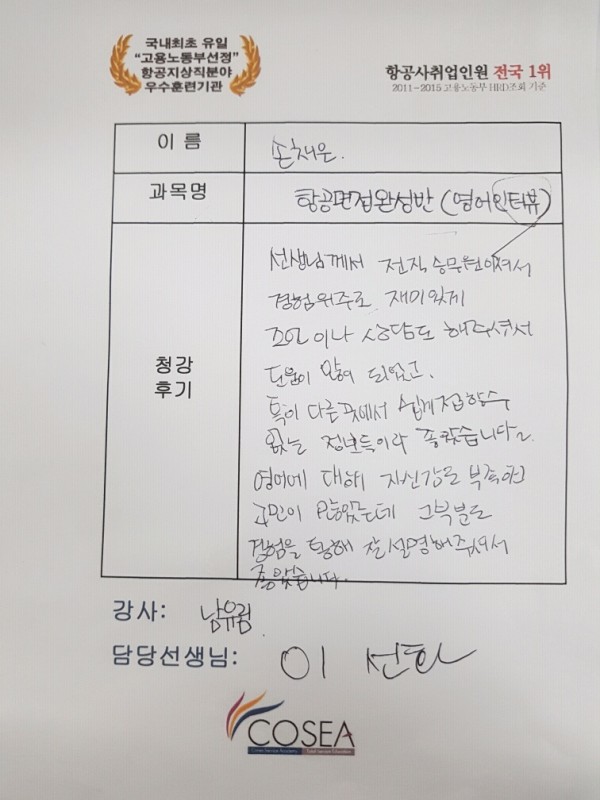 국내최초 유일
"고용노동부선정"
항공지상직분야
우수훈련기관
항공사취업인원 전국 1위
2011~2015 고용노동부 HRD조회 기준
이 름
손채은.
과목명
항공면접완성반 (영어인터뷰)
청강
후기
선생님께서 전직 승무원이셔서
경험위주로 재미있게
조언이나 상담도 해주셔서
도움이 많이 되었고.
특히 다른곳에서 쉽게 접할수
없는 정보들이라 좋았습니다.
영어에 대해 자신감도 부족하고
고민이 많았는데 그부분도
경험을 통해 잘 설명해주셔서
좋았습니다.
강사: 남유림
담당선생님: 이 선화
COSEA